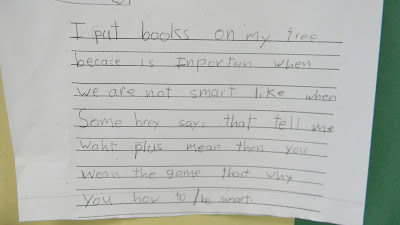 I put books on my tree
becase is Inportun when
we are not smart like when
Some brex says that tell me
waht plus mean then you
wean the game thart why
you hav to be smart.